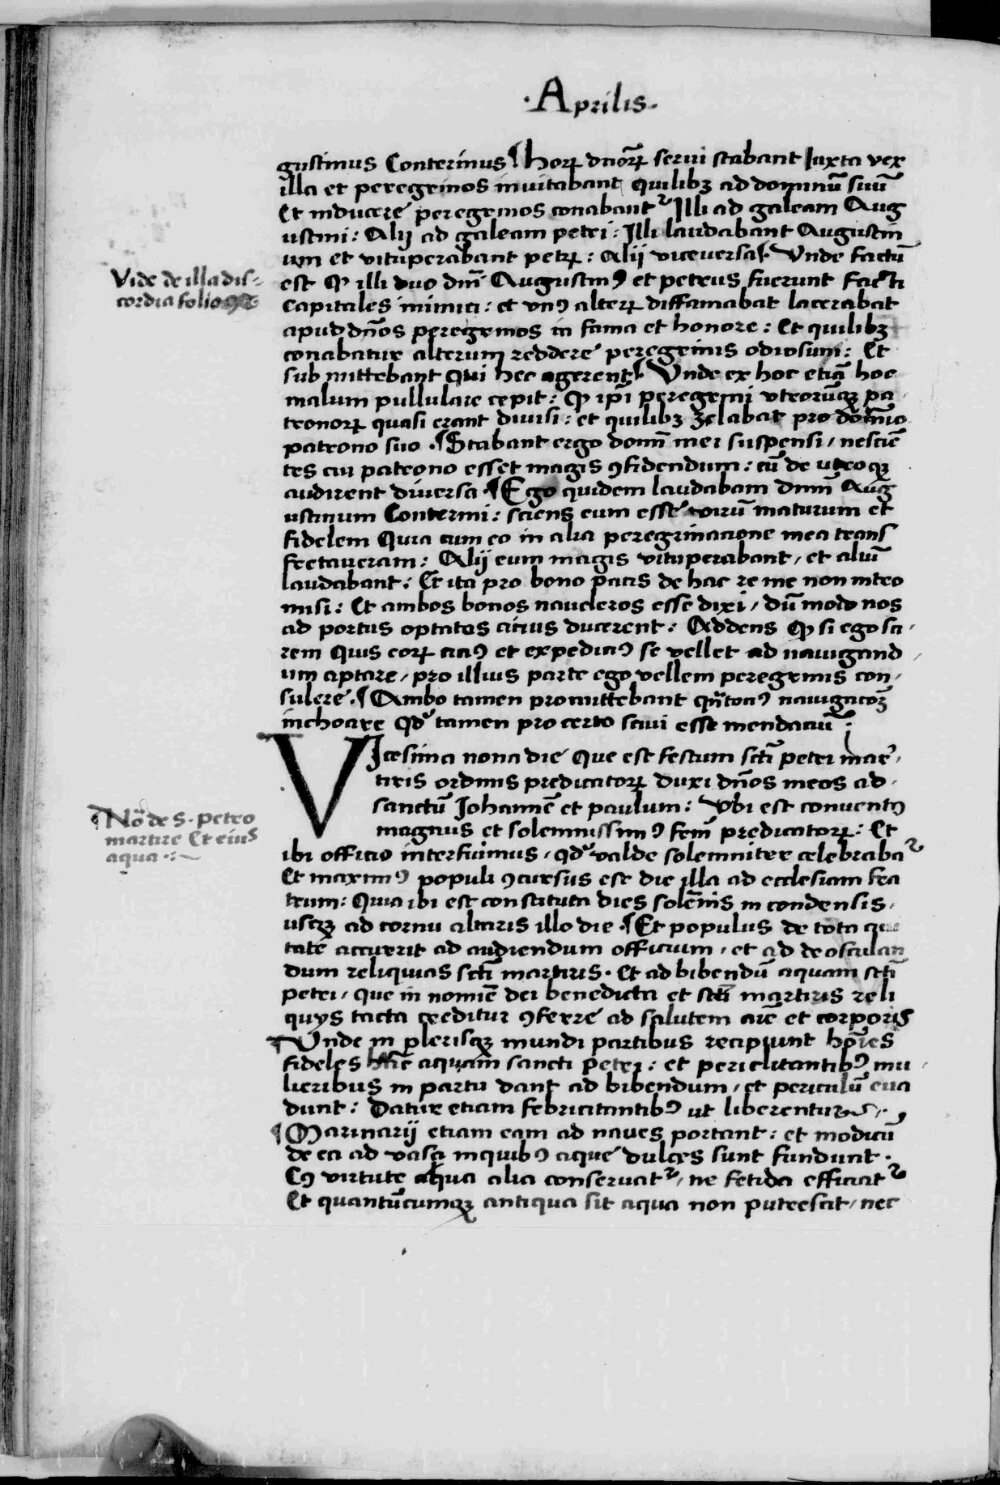 ·Aprilis·
gustinus Conterinus ¶ horꝝ dnōrꝝ serui stabant Iuxta vex
illa et peregrinos inuitabant quilibꝫ ad dominū suū
Et inducere peregrinos conabantᷣ Illi ad galeam Aug
ustini: Alij ad galeam petri: Illi laudabant Augustin
um et vituperabant petrꝝ: Alij viceversa ¶ Unde factū
est ꝙ illi duo dnī Augustinꝰ et petrus fuerunt facti
Capitales inimici: et vnꝰ alterꝝ diffamabat lacerabat
apud dn̄os peregrinos in fama et honore: Et quilibꝫ
conabatur alterum reddere peregrinis odiosum: Et
submittebant qui hec agerent ¶ Unde ex hoc etiā hoc
malum pullulare cepit: ꝙ ip̄i peregrini vtrorūqꝫ pa
tronorꝝ quasi erant diuisi: et quilibꝫ zelabat pro domīo
patrono suo ·¶ Stabant ergo domī mei suspensi / nescien̄
tes cui patrono esset magis ꝯfidendum: cū de vtroqꝫ
audirent diuersa ·¶ Ego quidem laudabam dnm̄ Aug
ustinum Conterini: sciens eum esse virum maturum et
fidelem Quia cum eo in alia peregrinacione mea trans
fretaueram: Alij eum magis vituperabant / et aliū
laudabant: Et ita pro bono pacis de hac re me non intro
misi: Et ambos bonos naucleros esse dixi / dū modo nos
ad portus optatos citius ducerent: Addens ꝙ si ego sci-
rem quis eorꝝ citiꝰ et expeditiꝰ se vellet ad nauigand
um aptare / pro illius parte ego vellem peregrinis con-
sulere ·¶ Ambo tamen promittebant qn̄tociꝰ nauigacōꝫ
inchoare qd̓ tamen pro certo sciui esse mendaciū:
VIcesima nona die que est festum scti petri mar-
tiris ordinis predicatorꝝ duxi dn̄os meos ad
sanctū Johannem et paulum: Vbi est conuentꝰ
magnus et solemnissimꝰ frm̄ predicatorꝝ: Et
ibi officio interfuimus / qd̓ valde solemniter celebrabaᷣ
Et maximꝰ populi ꝯcursus est die illa ad ecclesiam fra
trum: Quia ibi est constituta dies solēnis in condensis
usqꝫ ad cornu altaris illo die ·¶ Et populus de tota ciui
tate accurrit ad audiendum officium / et ad deosculan
dum reliquias scti martiris · Et ad bibendū aquam scti
petri / que in nomīe dei benedicta et scti martiris reli
quijs tacta creditur ꝯferre ad salutem aīe et corporis
¶ Unde in plerisqꝫ mundi partibus recipiunt hoīes
fideles hanc aquam sancti petri: et periclitantibꝰ mu
lieribus in partu dant ad bibendum / et periculū eua
dunt: Datur etiam febricitantibꝰ ut liberentur ·
¶ Marinarij etiam eam ad naues portant: et modicū
de ea ad vasa inquibꝰ aque dulces sunt fundunt ·
Cꝰ virtute aqua alia conseruatᷣ / ne fetida efficiatᷣ
Et quantūcumqꝫ antiqua sit aqua non putrescit / nec
Vide de illa dis-
cordia folio
¶ No de S. petro
martire Et eius
aqua